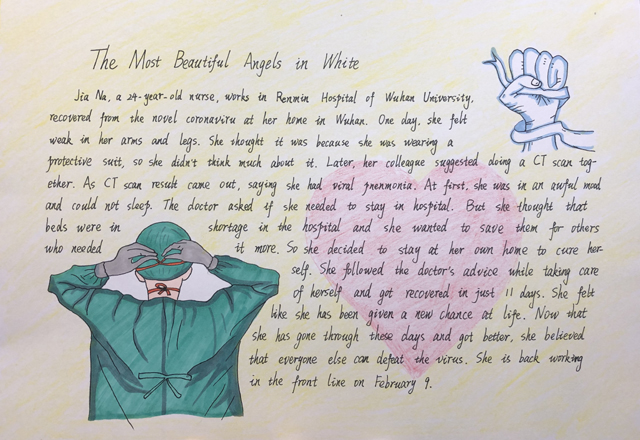 The Most Beautiful Angels in White
Jia Na, a 24-year-old nurse, works in Renmin Hospital of Wuhan University,
recovered from the novel coronaviru at her home in Wuhan. One day, she felt
weak in her arms and legs. She thought it was because she was wearing a
protective suit, so she didn't think much about it. Later, her colleague suggested doing a CT scan tog-
ether. As CT scan result came out, saying she had viral pnenmonia. At first, she was in an awful mod
and could not sleep. The doctor asked if she needed to stay in hospital. But she thought that
beds were in shortage in the hospital and she wanted to save them for others
who needed it more. So she decided to stay at her own home to cure her-
self. She followed the doctor's advice while taking care
of herself and got recovered in just 11 days. She felt
like she has been given a new chance at life. Now that
she has gone through these days and got better, she believed
that everyone else can defeat the virus. She is back working
in the front line on February 9.